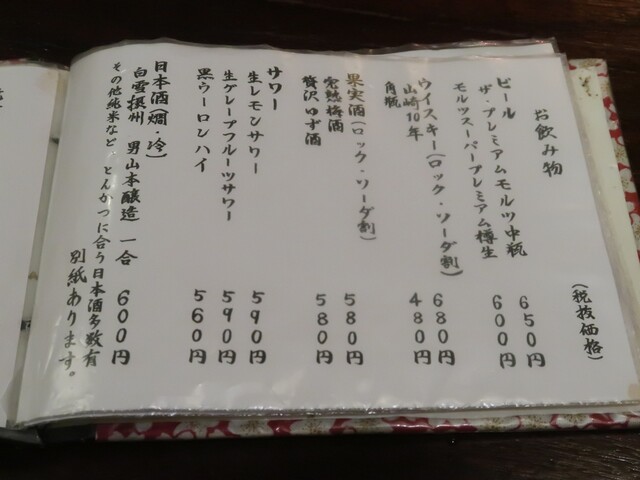 お飲み物
(税抜価格)
ビール
ザ・プレミアムモルツ中瓶 650円
モルツスーパープレミアム樽生 600円
ウイスキー(ロック・ソーダ割)
山崎10年 680円
角瓶 480円
果実酒(ロック・ソーダ割)
完熟梅酒 580円
贅沢ゆず酒 580円
サワー
生レモンサワー 590円
生グレープフルーツサワー 590円
黒ウーロンハイ 560円
日本酒(燗・冷)
白雪摂州 男山本醸造 一合 600円
その他純米など、とんかつに合う日本酒多数有
別紙あります。